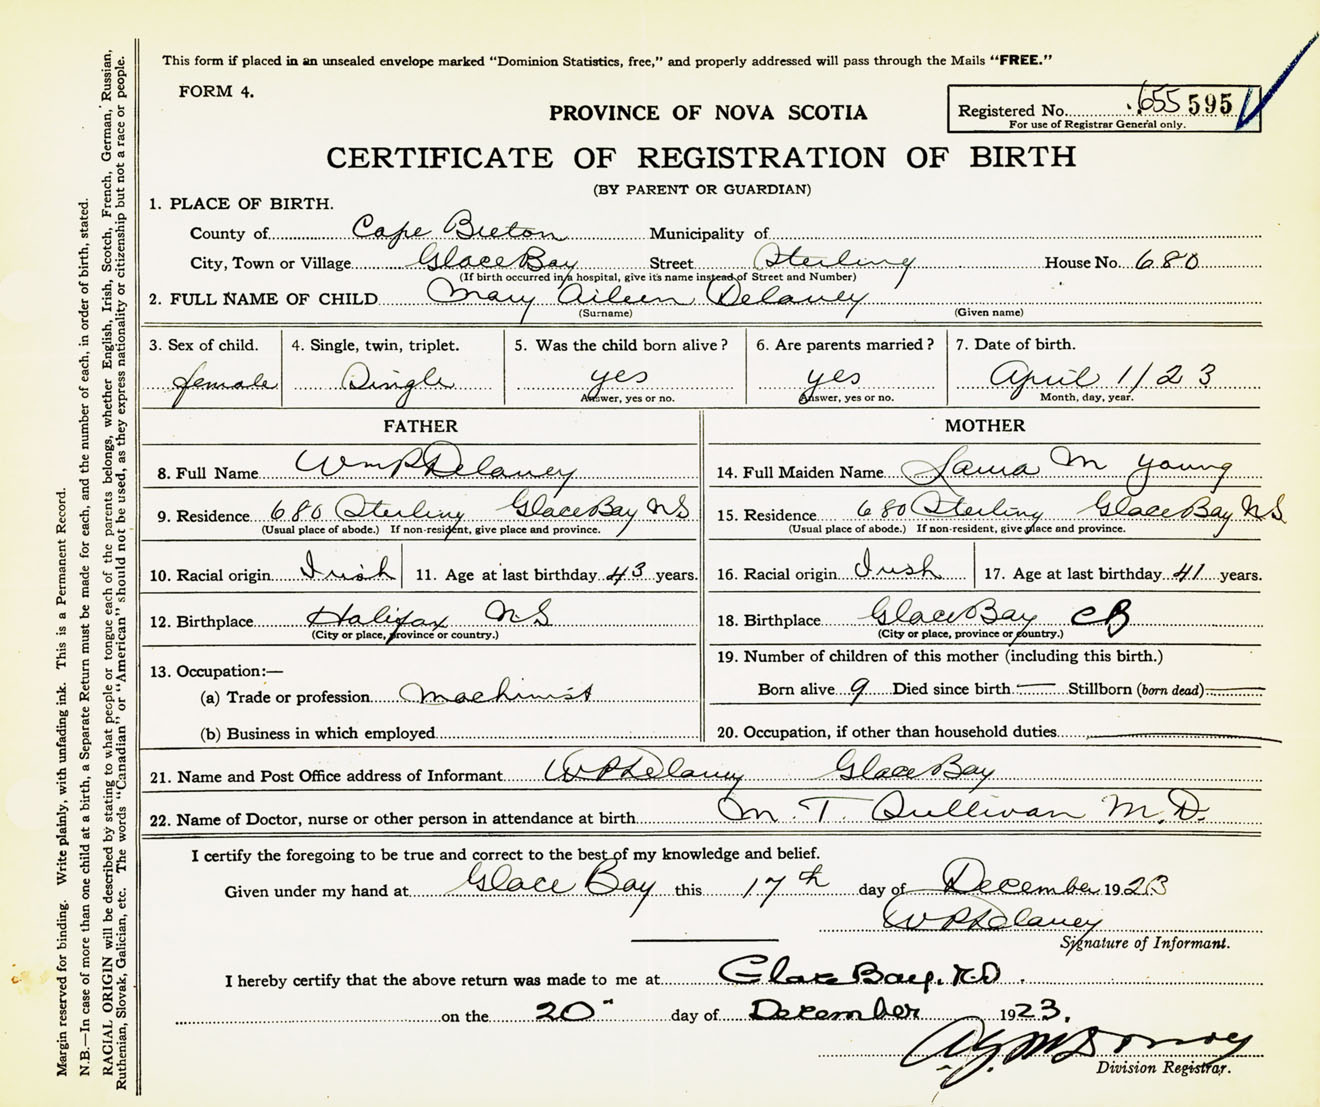 This form if placed in an unsealed envelope marked "Dominion Statistics, free," and properly addressed will pass through the Mails "FREE."
FORM 4.
PROVINCE OF NOVA SCOTIA
Registered No. 655 595
For use of Registrar General only.
CERTIFICATE OF REGISTRATION OF BIRTH
(BY PARENT OR GUARDIAN)
1. PLACE OF BIRTH.
County of Cape Breton Municipality of
City, Town or Village Glace Bay Street Sterling House No. 680
(If birth occurred in a hospital, give its name instead of Street and Number)
2. FULL NAME OF CHILD Mary Aileen Delaney
(Surname) (Given name)
3. Sex of child. 4. Single, twin, triplet. 5. Was the child born alive? 6. Are parents married? 7. Date of birth.
female Single yes yes April 1/23
Answer, yes or no. Answer, yes or no. Month, day, year.
FATHER MOTHER
8. Full Name Wm P Delaney 14. Full Maiden Name Laura M Young
9. Residence 680 Sterling Glace Bay NS 15. Residence 680 Sterling Glace Bay NS
(Usual place of abode.) If non-resident, give place and province. (Usual place of abode.) If non-resident, give place and province.
10. Racial origin Irish 11. Age at last birthday 43 years. 16. Racial origin Irish 17. Age at last birthday 41 years.
12. Birthplace Halifax NS 18. Birthplace Glace Bay CB
(City or place, province or country.) (City or place, province or country.)
13. Occupation:— 19. Number of children of this mother (including this birth.)
(a) Trade or profession Machinist Born alive 9 Died since birth — Stillborn (born dead) —
(b) Business in which employed 20. Occupation, if other than household duties
21. Name and Post Office address of Informant W P Delaney Glace Bay
22. Name of Doctor, nurse or other person in attendance at birth M. T. Sullivan M.D.
I certify the foregoing to be true and correct to the best of my knowledge and belief.
Given under my hand at Glace Bay this 17th day of December 1923
W P Delaney
Signature of Informant.
I hereby certify that the above return was made to me at Glace Bay, N.S.
on the 20" day of December 1923.
Division Registrar.
Margin reserved for binding. Write plainly, with unfading ink. This is a Permanent Record.
N.B.—In case of more than one child at a birth, a Separate Return must be made for each, and the number of each, in order of birth, stated.
RACIAL ORIGIN will be described by stating to what people or tongue each of the parents belongs, whether English, Irish, Scotch, French, German, Russian,
Ruthenian, Slovak, Galician, etc. The words "Canadian" or "American" should not be used, as they express nationality or citizenship but not a race or people.